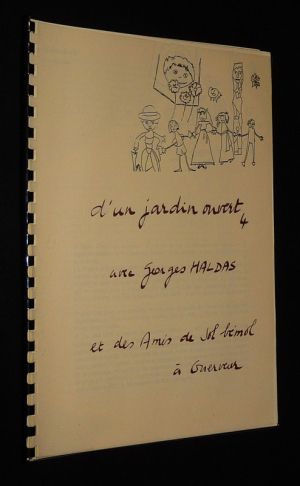 d'un jardin ouvert 4
avec Georges HALDAS
et des Amis de Sol bémol
à Querveur